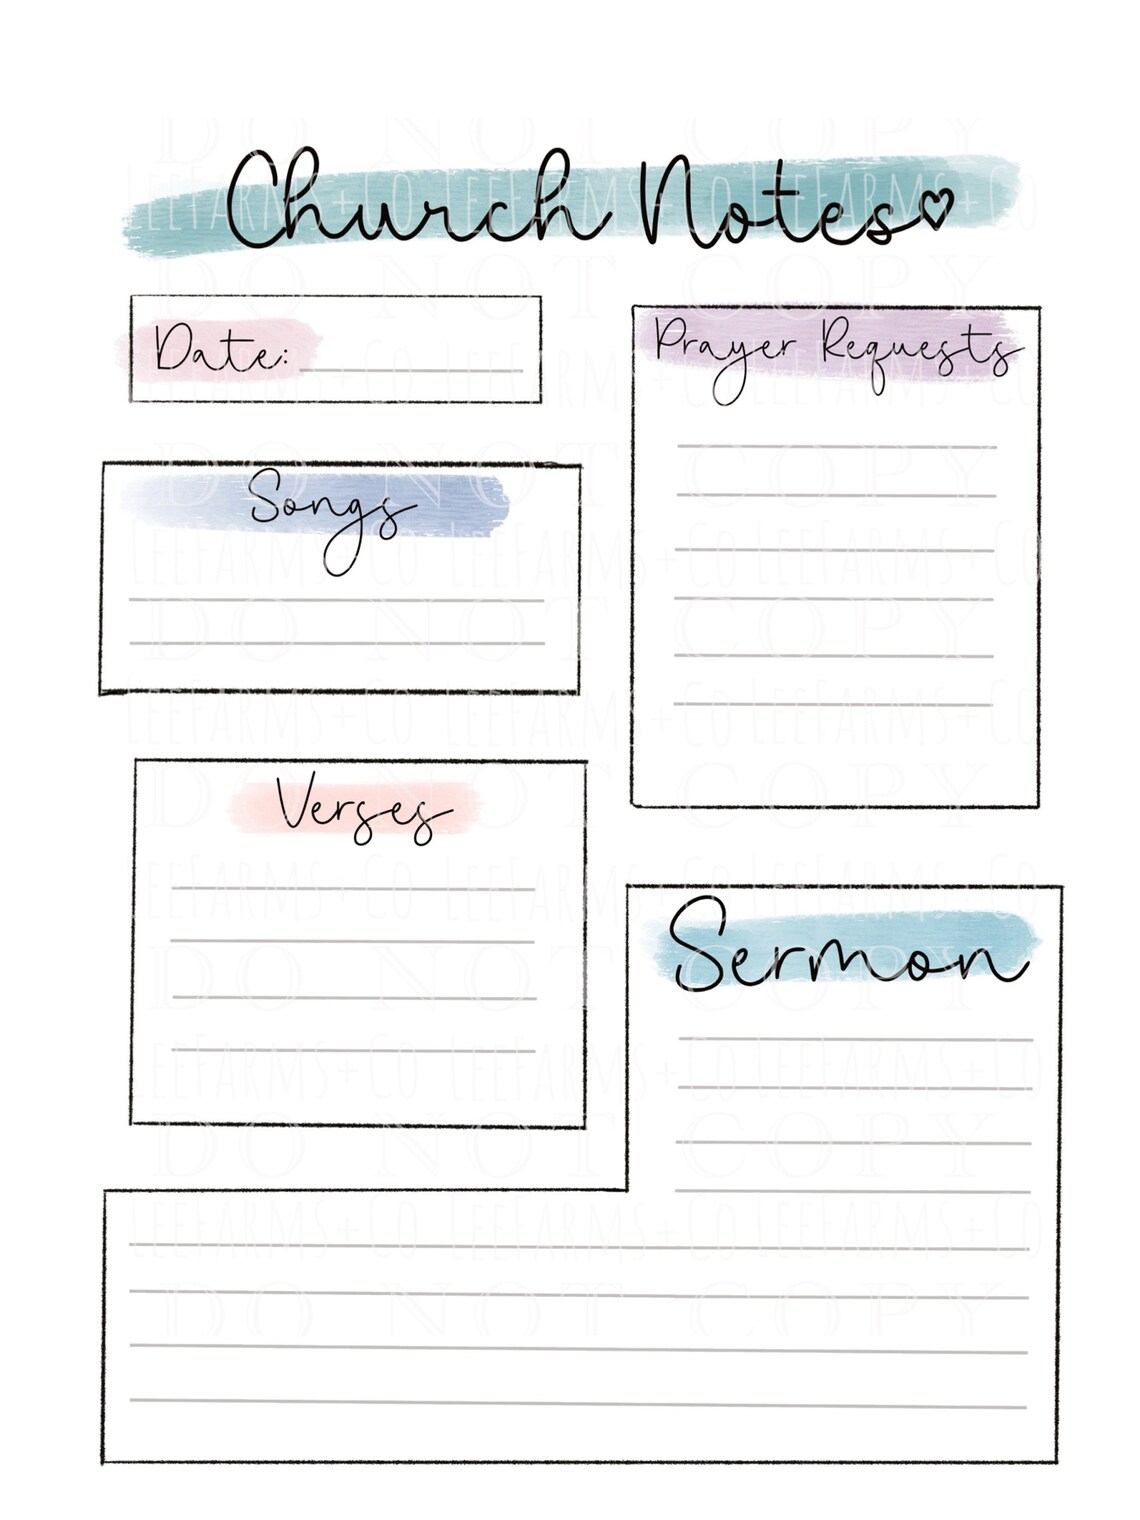 Church Notes♡
Date:
Prayer Requests
Songs
Verses
Sermon
DO NOT COPY
LeeFarms+Co LeeFarms+Co LeeFarms+Co
DO NOT COPY
LeeFarms+Co LeeFarms+Co LeeFarms+Co
DO NOT COPY
LeeFarms+Co LeeFarms+Co LeeFarms+Co
DO NOT COPY
LeeFarms+Co LeeFarms+Co LeeFarms+Co
DO NOT COPY
LeeFarms+Co LeeFarms+Co LeeFarms+Co
DO NOT COPY
LeeFarms+Co LeeFarms+Co LeeFarms+Co
DO NOT COPY
LeeFarms+Co LeeFarms+Co LeeFarms+Co
DO NOT COPY